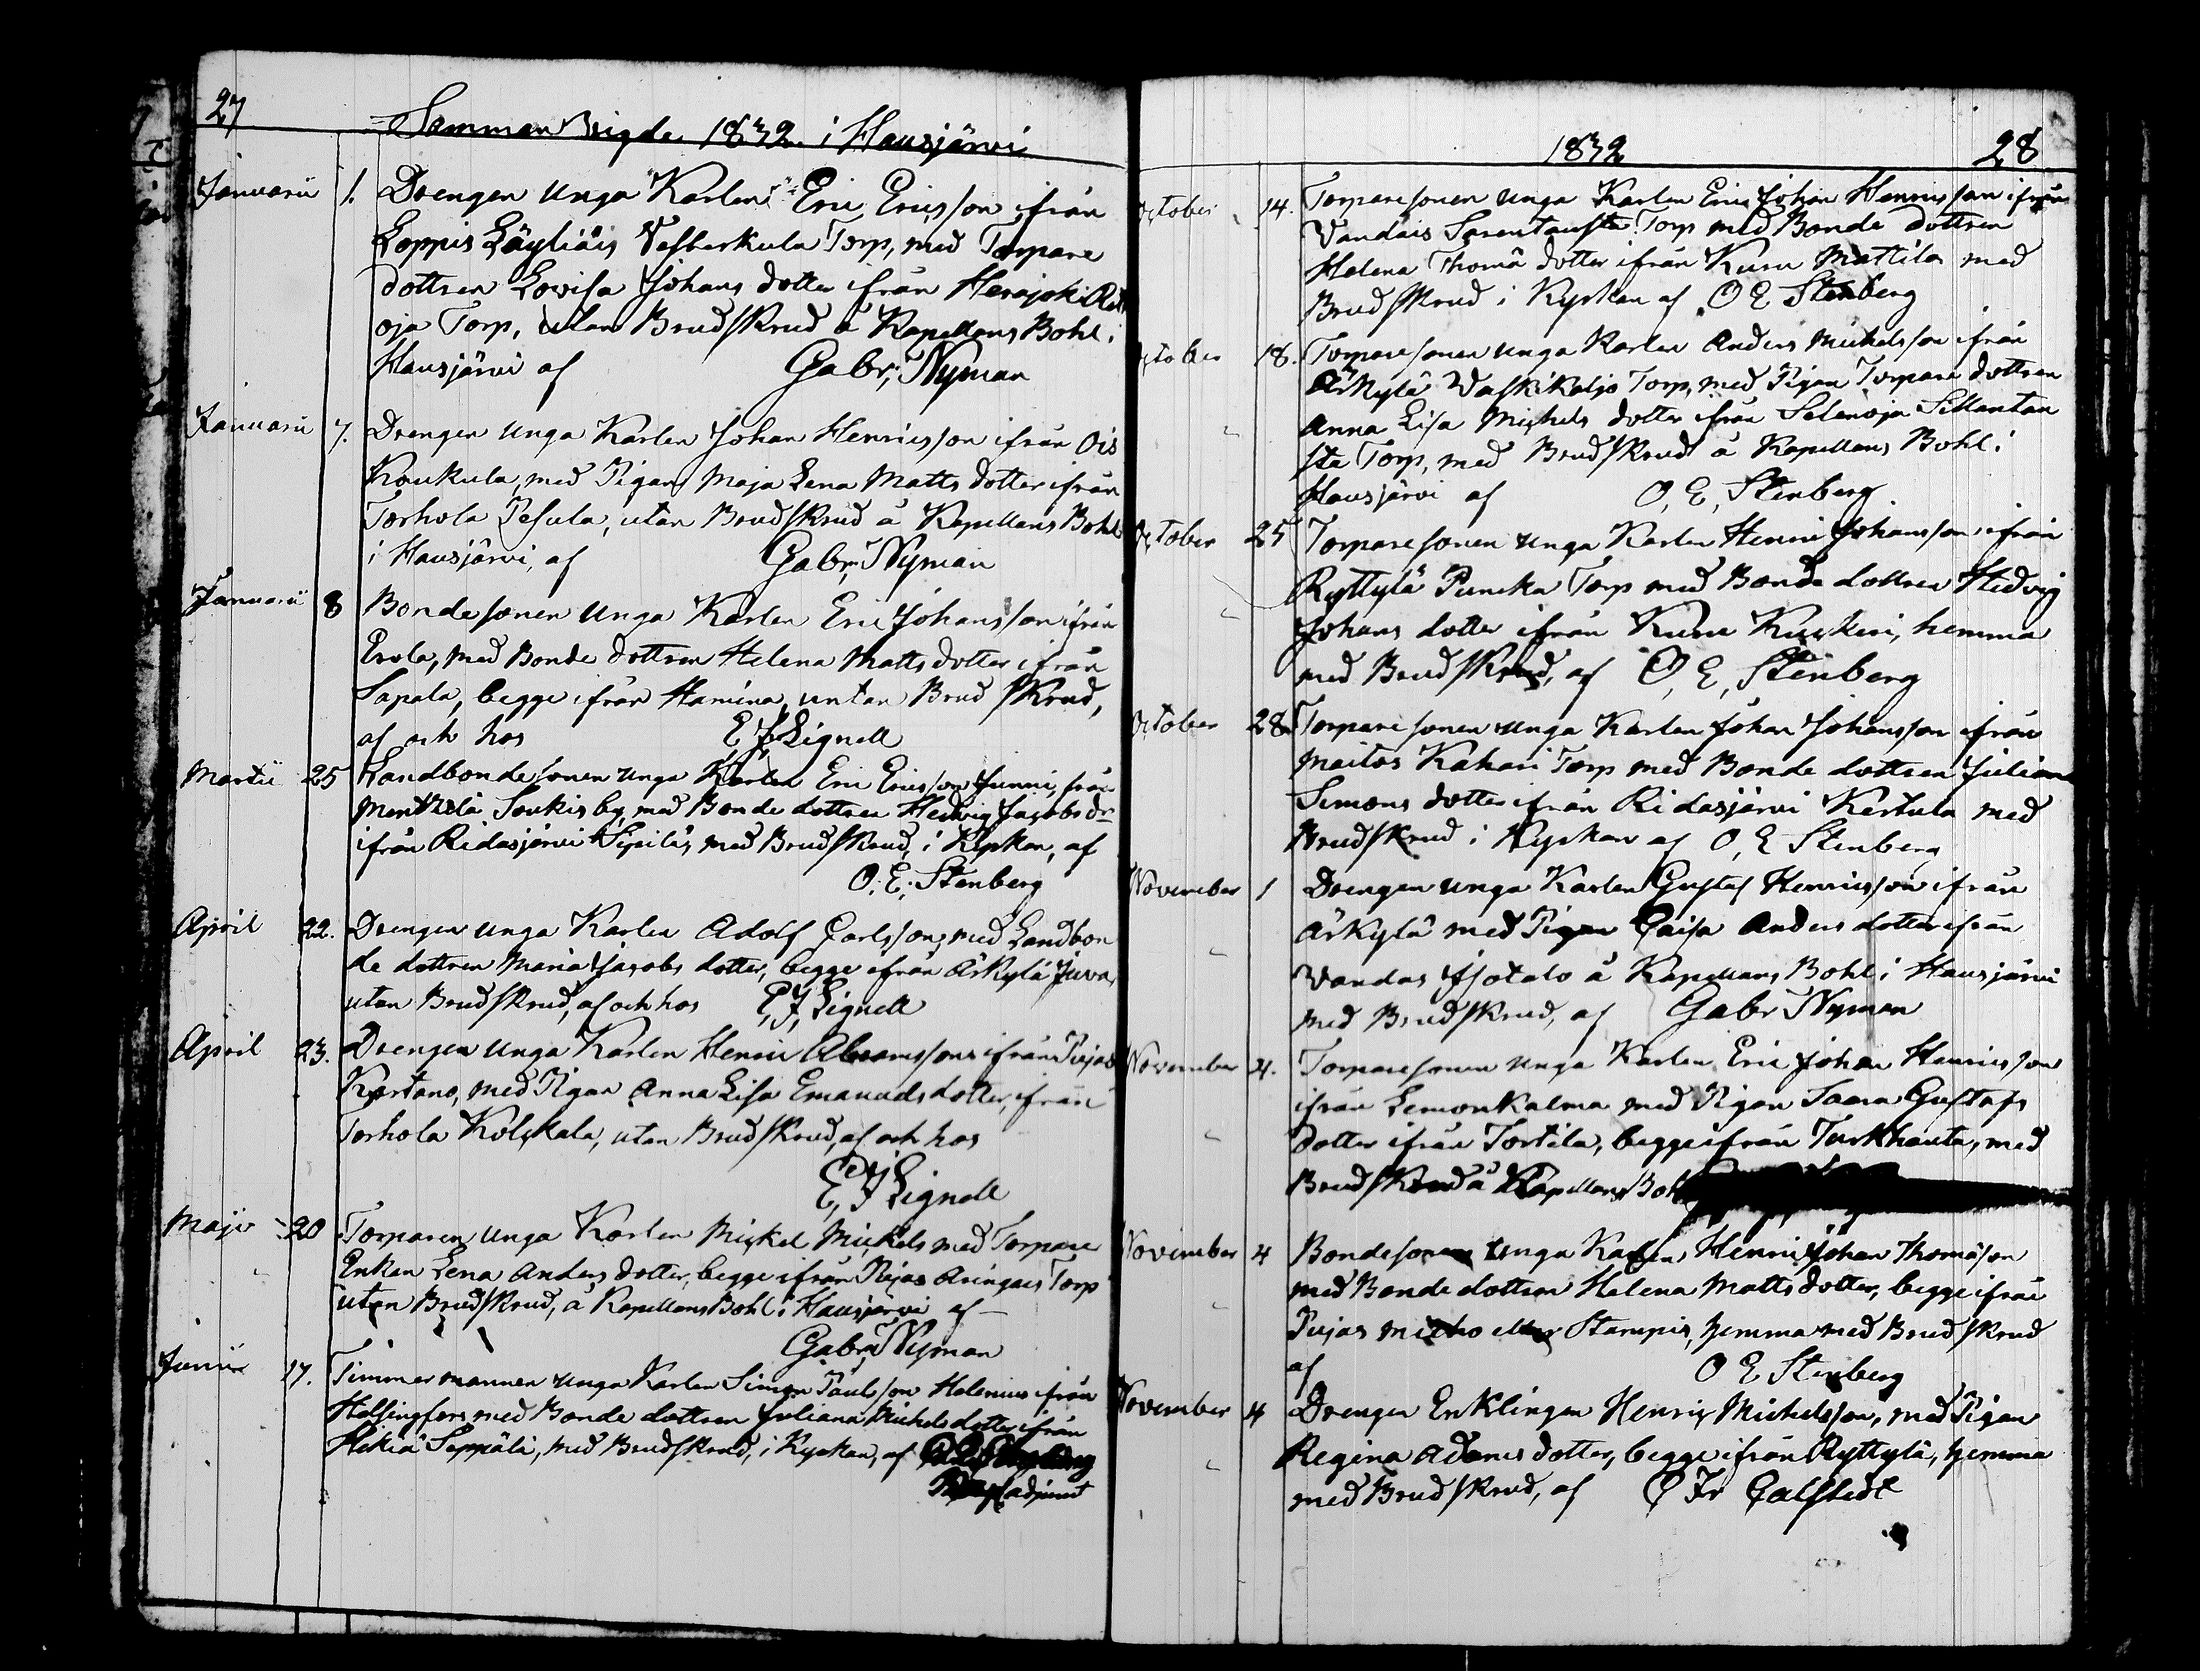 27
Sammanvigde 1832 i Hausjärvi
Januarii 1. Drengen Unga Karlen Eric Ericsson ifrån
Loppis Läyliäis Vesterkula Torp, med Torpare
dottren Lovisa Johans dotter ifrån Herajoki
oja Torp, utan Brudskrud å Kapellans Bohl i
Hausjärvi af Gabr. Nyman
Januarii 7. Drengen Unga Karlen Johan Henricsson ifrån Ois
Koukula, med Pigan Maja Lena Matts dotter ifrån
Torhola Pesula, utan Brudskrud å Kapellans Bohl
i Hausjärvi, af Gabr. Nyman
Januarii 8 Bondesonen Unga Karlen Eric Johansson ifrån
Erola, med Bonde dottren Helena Mattsdotter ifrån
Sapala, begge ifrån Hamina, utan Brud skrud,
af och hos E J Lignell
Martii 25 Landbondesonen Unga Karlen Eric Ericsson Junni, från
Mentzelä Soukis by, med Bonde dottren Hedvig Jacobs dr
ifrån Ridasjärvi med Brudskrud, i Kyrkan, af
O. E. Stenberg
April 22. Drengen unga Karlen Adolf Carlsson, med Landbon
de dottren Maria Jacobs dotter, begge ifrån Arkylä Juva,
utan Brudskrud, af och hos E, J, Lignell
April 23. Drengen Unga Karlen Henric Abramsson ifrån Pujas
Kartano, med Pigan Anna Lisa Emanuels dotter, ifrån
Torhola Kolckala, utan Brudskrud, af och hos
E, J Lignell
Maji 20 Torparen Unga Karlen Mickel Mickels med Torpare
Enkan Lena Anders dotter, begge ifrån Pujas Aringais Torp
utan Brudskrud, å Kapellans Bohl i Hausjärvi af
Gabr. Nyman
Junii 17. Timmermannen unga Karlen Simon Paulsson Helenius ifrån
Helsingfors med Bonde dottren Juliana Michels dotter ifrån
Hekiä Seppälä, med Brudskrud, i Kyrkan, af
adjunct
1832 28
October 14. Torparesonen unga Karlen Eric Johan Henricsson ifrån
Vandais Sarentausta Torp med Bonde dottren
Helena Thomä dotter ifrån Kuru Mattila med
Brudskrud i Kyrkan af O E Stenberg
October 18. Torparesonen unga Karlen Anders Michelsson ifrån
Arkylä Vaskikaljo Torp, med Pigan Torpare dottren
Anna Lisa Michels dotter ifrån Selänoja Sillantau
sta Torp, med Brudskrud å Kapellans Bohl i
Hausjärvi af O, E, Stenberg
October 25 Torparesonen unga Karlen Henric Johansson ifrån
Ryttylä Puncka Torp med Bonde dottren Hedvig
Johans dotter ifrån Kuru Kuckeri, hemma
med Brudskrud, af O, E, Stenberg
October 28 Torparesonen unga Karlen Johan Johansson ifrån
Maitos Kahari Torp med Bonde dottren Juliana
Simons dotter ifrån Ridasjärvi Kertula med
Brudskrud i Kyrkan af O, E Stenberg
November 1 Drengen unga Karlen Gustaf Henricsson ifrån
Arkylä med Pigan Caisa Anders dotter ifrån
Vandas Isotalo å Kapellans Bohl i Hausjärvi
med Brudskrud, af Gabr Nyman
November 4. Torparesonen unga Karlen Eric Johan Henricsson
ifrån Lemonkalma med Pigan Saara Gustafs
dotter ifrån Tortila, begge ifrån Turkhauta, med
Brudskrud å Kapellans Bohl
November 4 Bondesonen Unga Karlen Henric Johan Thomäson
med Bonde dottren Helena Matts dotter, begge ifrån
Pujas Mitho eller Stampis, hemma med Brud skrud
af O E Stenberg
November 4 Drengen Enklingen Henric Michelsson, med Pigan
Regina Adams dotter, begge ifrån Ryttylä, hemma
med Brudskrud, af C Fr Calstedt